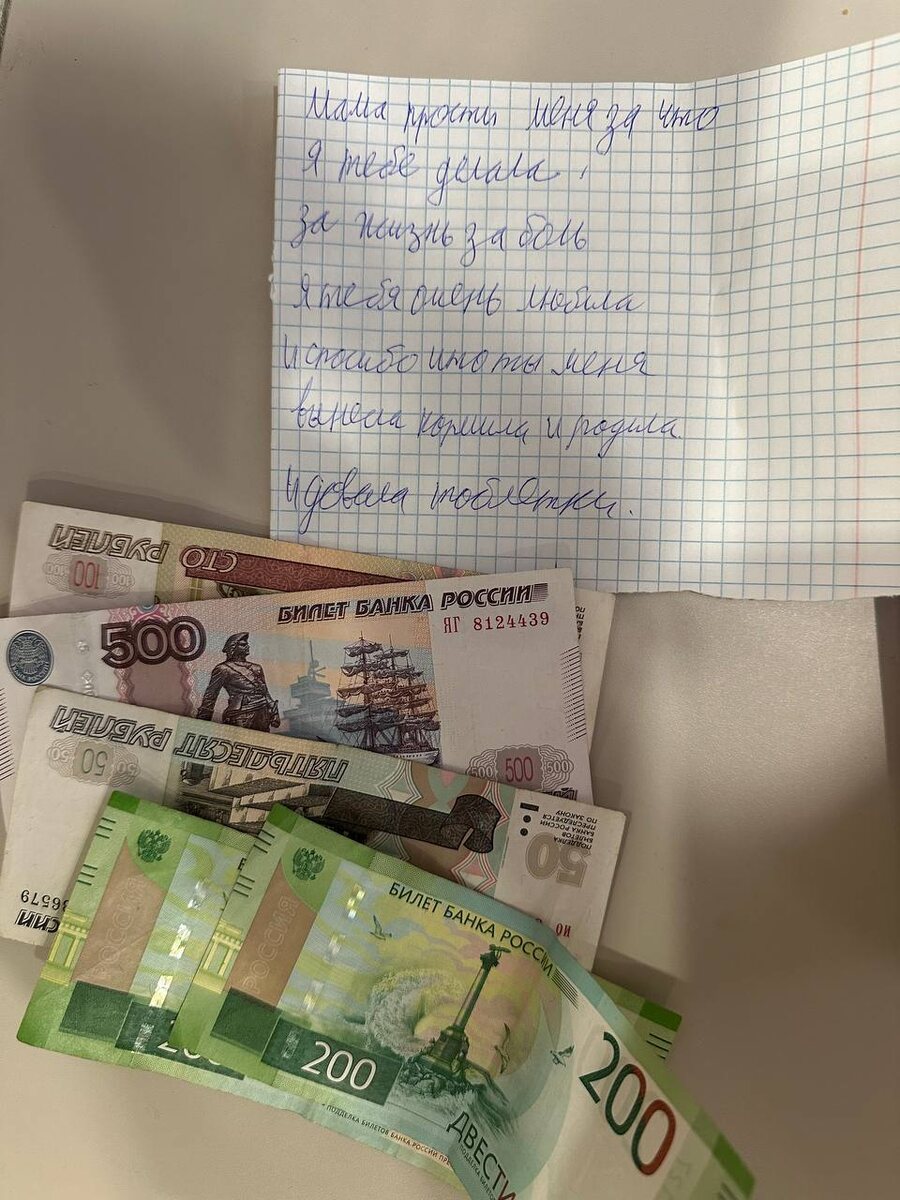 Мама прости меня за что
я тебе делала,
за жизнь за боль
я тебя очень любила
и спосибо что ты меня
вынесла кормила и родила.
и довала таблетки.
СТО РУБЛЕЙ
100
100
100
БИЛЕТ БАНКА РОССИИ
ЯГ 8124439
500
500 500 500
ПЯТЬДЕСЯТ РУБЛЕЙ
50 50 50
ПОДДЕЛКА
БИЛЕТОВ
БАНКА РОССИИ
ПРЕСЛЕДУЕТСЯ
ПО ЗАКОНУ
50
36579
ИО
РОССИЯ
РОССИЯ
БИЛЕТ БАНКА РОССИИ
200
200
200
ДВЕСТИ
ПОДДЕЛКА БИЛЕТОВ БАНКА РОССИИ